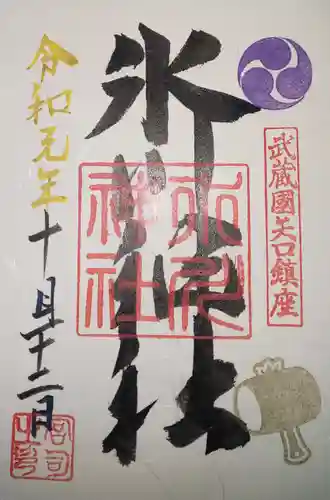 武蔵國矢口鎮座
氷川神社
氷川神社
令和元年十月十二日
宮司之印